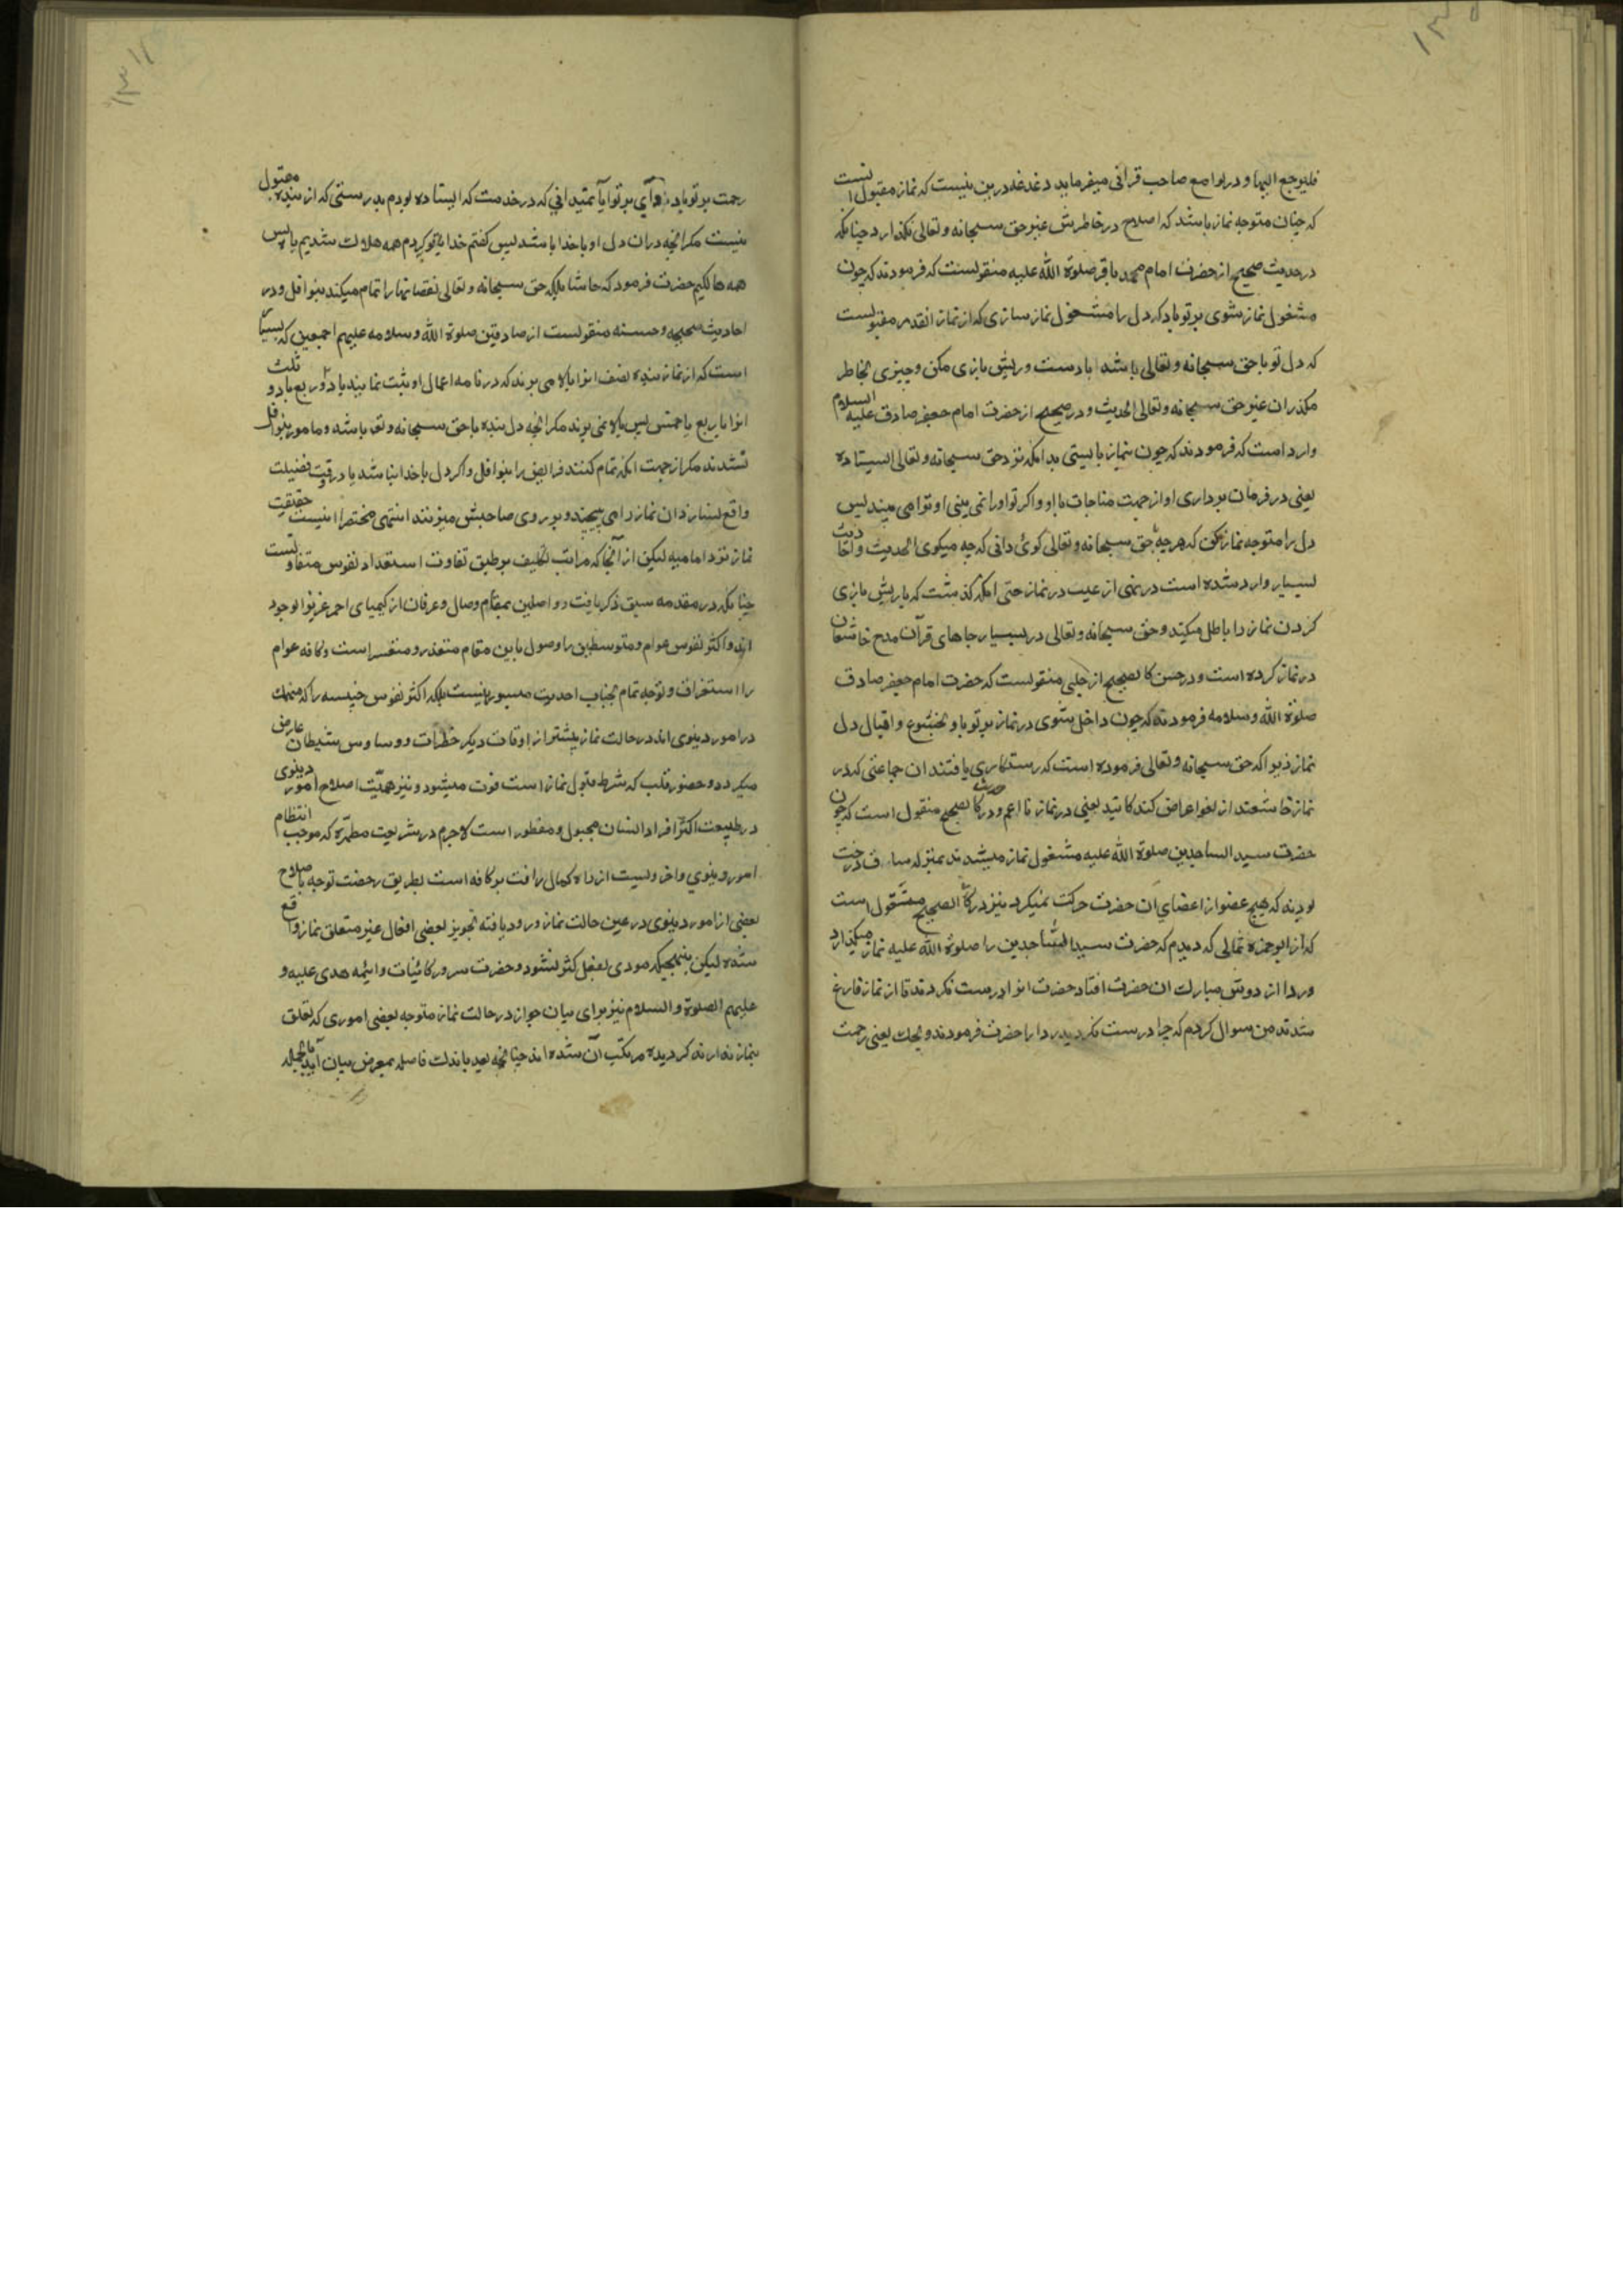 فلیرجع الیها و در لوامع صاحب قرانی میفرماید دغدغه درین نیست که نماز مقبول نیست
که چنان متوجه نماز باشد که اصلاح در خاطرش غیر حق سبحانه و تعالی نکذارد چنانکه
در حدیث صحیح از حضرت امام محمد باقر صلوة الله علیه منقولست که فرمودند که چون
مشغول نماز شوی بر تو باد که دل را مشغول نماز سازی که از نماز انقدر مقبولست
که دل تو با حق سبحانه و تعالی باشد با دست و ریش بازی مکن و چیزی بخاطر
مکذران غیر حق سبحانه و تعالی الحدیث و در صحیح از حضرت امام جعفر صادق علیه السلام
وارد است که فرمودند که چون بنماز بایستی بدانکه نزد حق سبحانه و تعالی ایستاده
یعنی در فرمان برداری او از جهت مناجات با او و اکر تو او را نمی بینی او ترا می بیند پس
دل را متوجه نماز کن که هرچه بحق سبحانه و تعالی کوئی دانی که چه میکوی الحدیث و احادیث
بسیار وارد شده است در نهی از عبث در نماز حتی انکه کذشت که با ریش بازی
کردن نماز را باطل میکند و حق سبحانه و تعالی در بسیار جاهای قرآن مدح خاشعان
در نماز کرده است و در حسن کالصحیح از حلبی منقولست که حضرت امام جعفر صادق
صلوة الله و سلامه فرمودند که چون داخل شوی در نماز بر تو باد بخشوع و اقبال دل
نماز زیرا که حق سبحانه و تعالی فرموده است که رستکاری یافتند ان جماعتی که در
نماز خاشعند از لغو اعراض کنندکانند یعنی در نماز تا اعم و در حدیث کالصحیح منقول است که چون
حضرت سید الساجدین صلوة الله علیه مشغول نماز میشدند بمنزله ساق درخت
بودند که هیچ عضو از اعضای ان حضرت حرکت نمیکرد نیز در کالصحیح منقول است
که از ابوحمزه ثمالی که دیدم که حضرت سید الساجدین را صلوة الله علیه نماز میکذارد
و ردا از دوش مبارک ان حضرت افتاد حضرت انرا درست نکردند تا از نماز فارغ
شدند من سوال کردم که چرا درست نکردید ردا را حضرت فرمودند ویحک یعنی رحمت
رحمت بر تو باد وای بر تو ایا نمیدانی که در خدمت که ایستاده بودم بدرستی که از بنده مقبول
نیست مکر انچه دران دل او با خدا باشد پس کفتم خدای تو کردم همه هلاک شدیم یا پس
همه هالکیم حضرت فرمود که حاشا بلکه حق سبحانه و تعالی نقصانها را تمام میکند بنوافل و در
احادیث صحیحه و حسنه منقولست از صادقین صلوة الله و سلامه علیهم اجمعین که بسیار
است که از نماز بنده نصف انرا بالا می برند که در نامه اعمال او ثبت نمایند یا دو ربع یا دو ثلث
انرا یا ربع یا خمس پس بالا نمی برند مکر انچه دل بنده با حق سبحانه و تعـ باشد و مامور بنوافل
نشدند مکر از جهت انکه تمام کنند فرایض را بنوافل و اکر دل با خدا نباشد یا در وقت فضیلت
واقع نسازد ان نماز را می پیچند و بر روی صاحبش میزنند انتهی مختصرا اینست حقیقت
نماز نزد امامیه لیکن از آنجا که مراتب تکلیف بر طبق تفاوت استعداد نفوس متفاوتست
چنانکه در مقدمه سبق ذکر یافت و واصلین بمقام وصال و عرفان از کیمیای احمر عزیز الوجود
اند و اکثر نفوس عوام و متوسطین را وصول باین مقام متعذر و متعسر است و کافه عوام
را استغراق و توجه تمام بجناب احدیت میسور نیست بلکه اکثر نفوس خسیسه را که منهمک
در امور دینوی اند در حالت نماز بیشتر از اوقات دیکر خطرات و وساوس شیطان عارض
میکردد و حضور قلب که شرط قبول نماز است فوت میشود و نیز همیّت اصلاح امور دینوی
در طبیعت اکثر افراد انسان مجبول و مفطور است لاجرم در شریعت مطهّره که موجب انتظام
امور دینوی و اخرویست از راه کمال رافت بر کافه است بطریق رخصت توجه باصلاح
بعضی از امور دینوی در عین حالت نماز ورود یافته تجویز بعضی افعال غیر متعلق نماز واقع
شده لیکن بنهجیکه مودی بفعل کثیر نشود و حضرت سرور کائینات و ائیمه هدی علیه و
علیهم الصلوة و السلام نیز برای بیان جواز در حالت نماز متوجه بعضی اموری که تعلق
بنماز ندارند کردیده مرتکب آن شده اند چنانچه بعد باندک فاصله بمعرض بیان آید بالجمله